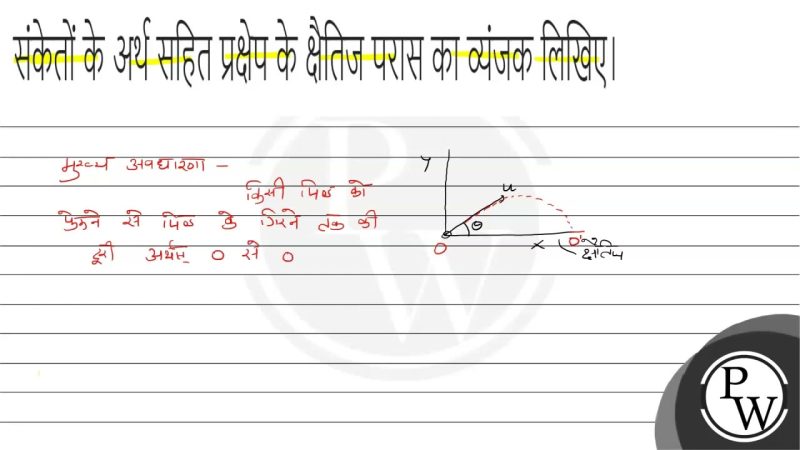 संकेतों के अर्थ सहित प्रक्षेप के क्षैतिज परास का व्यंजक लिखिए।
मुख्य अवधारणा -
किसी पिण्ड को
फेंकने से पिण्ड के गिरने तक की
दूरी अर्थात् O से O
y
u
θ
O
x
O'
क्षैतिज
PW